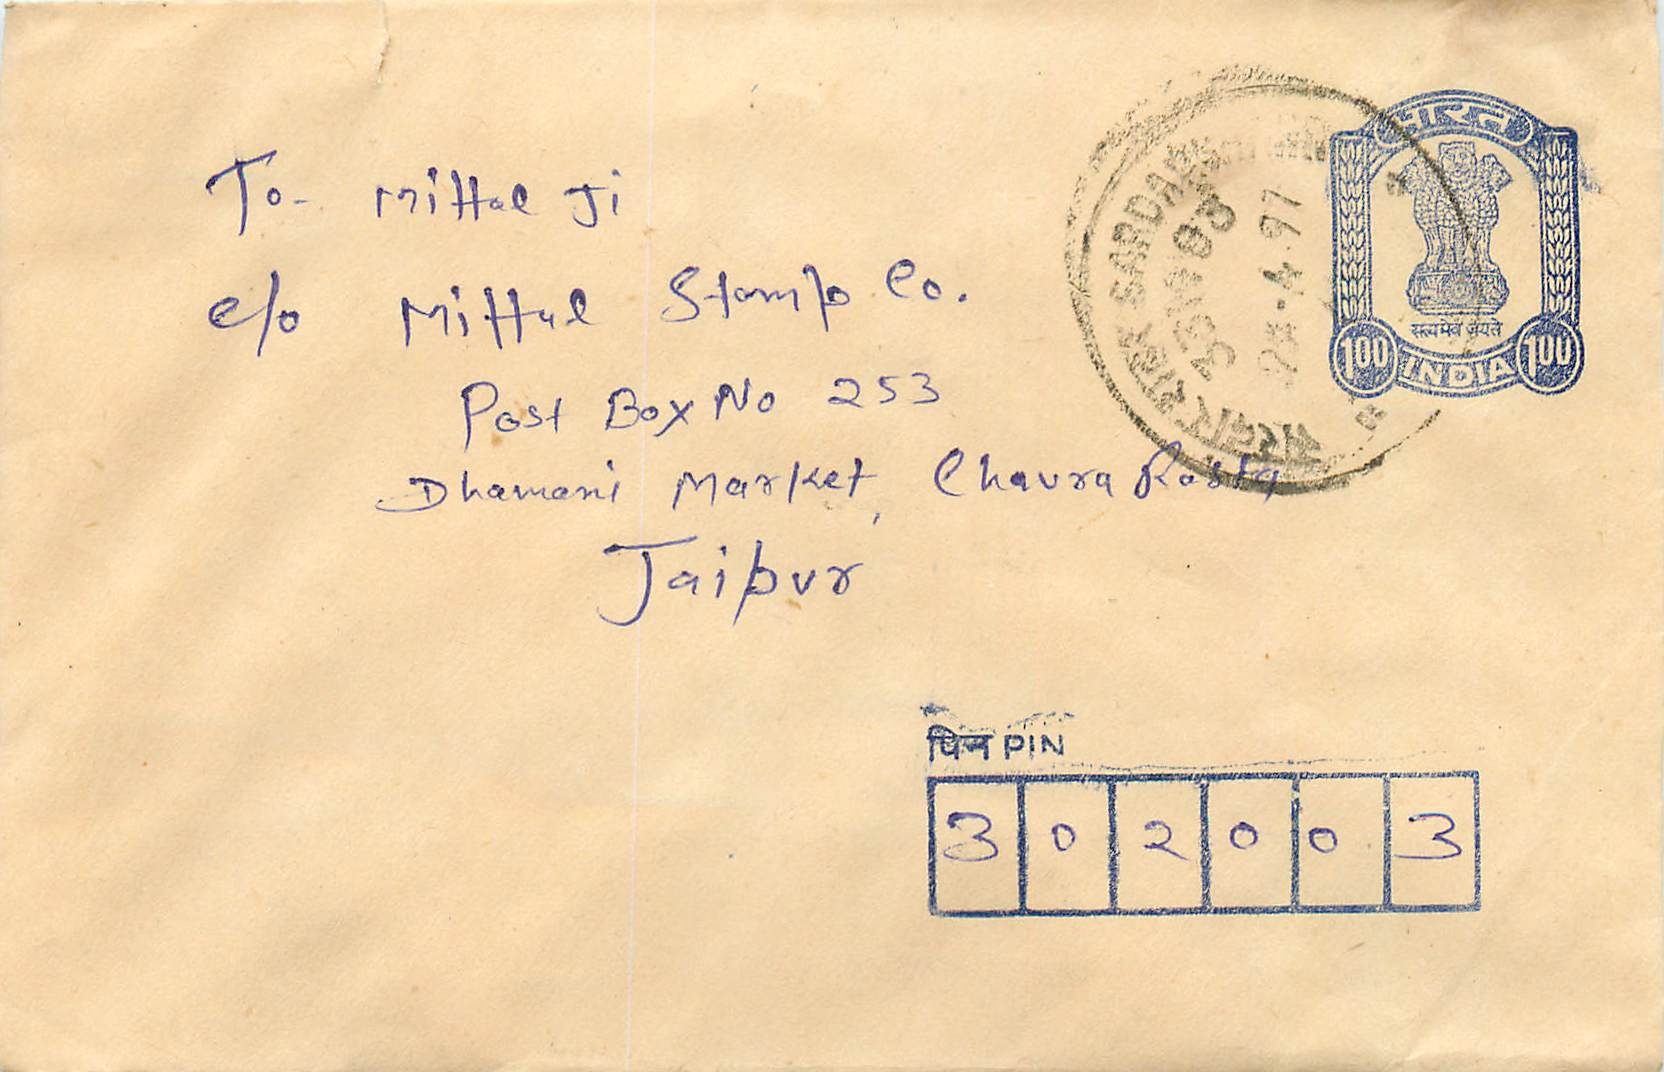 To- Mittal Ji
c/o Mittal Stamp Co.
Post Box No 253
Dhamani Market, Chaura Rasta
Jaipur
भारत
सत्यमेव जयते
100 INDIA 100
सरदार शहर SARDAR
331403
-4-97
पिन PIN
3 0 2 0 0 3